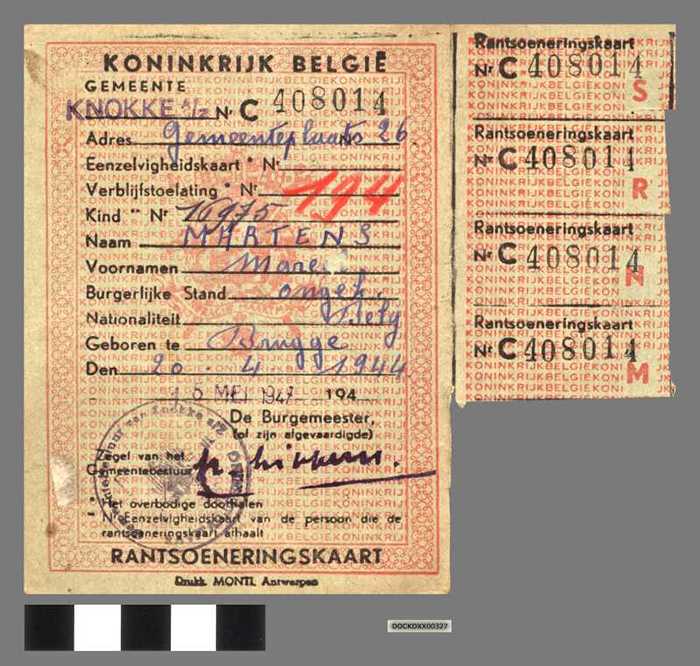 KONINKRIJK BELGIË
GEMEENTE
KNOKKE a/z Nr C 408014
Adres Gemeenteplaats 26
Eenzelvigheidskaart * Nr
Verblijfstoelating * Nr 194
Kind ** Nr 16975
Naam MARTENS
Voornamen
Burgerlijke Stand ongeh.
Nationaliteit Belg
Geboren te Brugge
Den 20 - 4 - 1944
1 6 MEI 1947 194
De Burgemeester,
(of zijn afgevaardigde)
Zegel van het
Gemeentebestuur
* Het overbodige doorhalen
** Nr Eenzelvigheidskaart van de persoon die de
rantsoeneringskaart afhaalt
RANTSOENERINGSKAART
Drukk. MONTI, Antwerpen
Rantsoeneringskaart
Nr C 408014
S
Rantsoeneringskaart
Nr C 408014
R
Rantsoeneringskaart
Nr C 408014
N
Rantsoeneringskaart
Nr C 408014
M
DOCKDXX00327